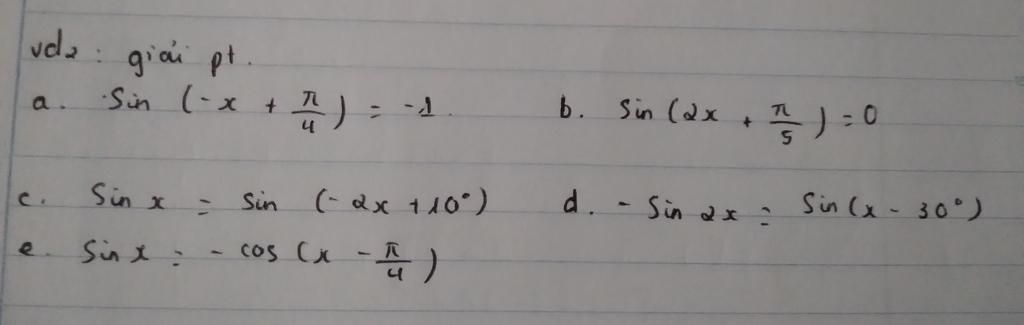 vd2 : giải pt.
a. Sin (-x + π/4) = -1.    b. Sin (2x + π/5) = 0
c. Sin x = Sin (-2x + 10°)    d. - Sin 2x = Sin (x - 30°)
e. Sin x = - cos (x - π/4)